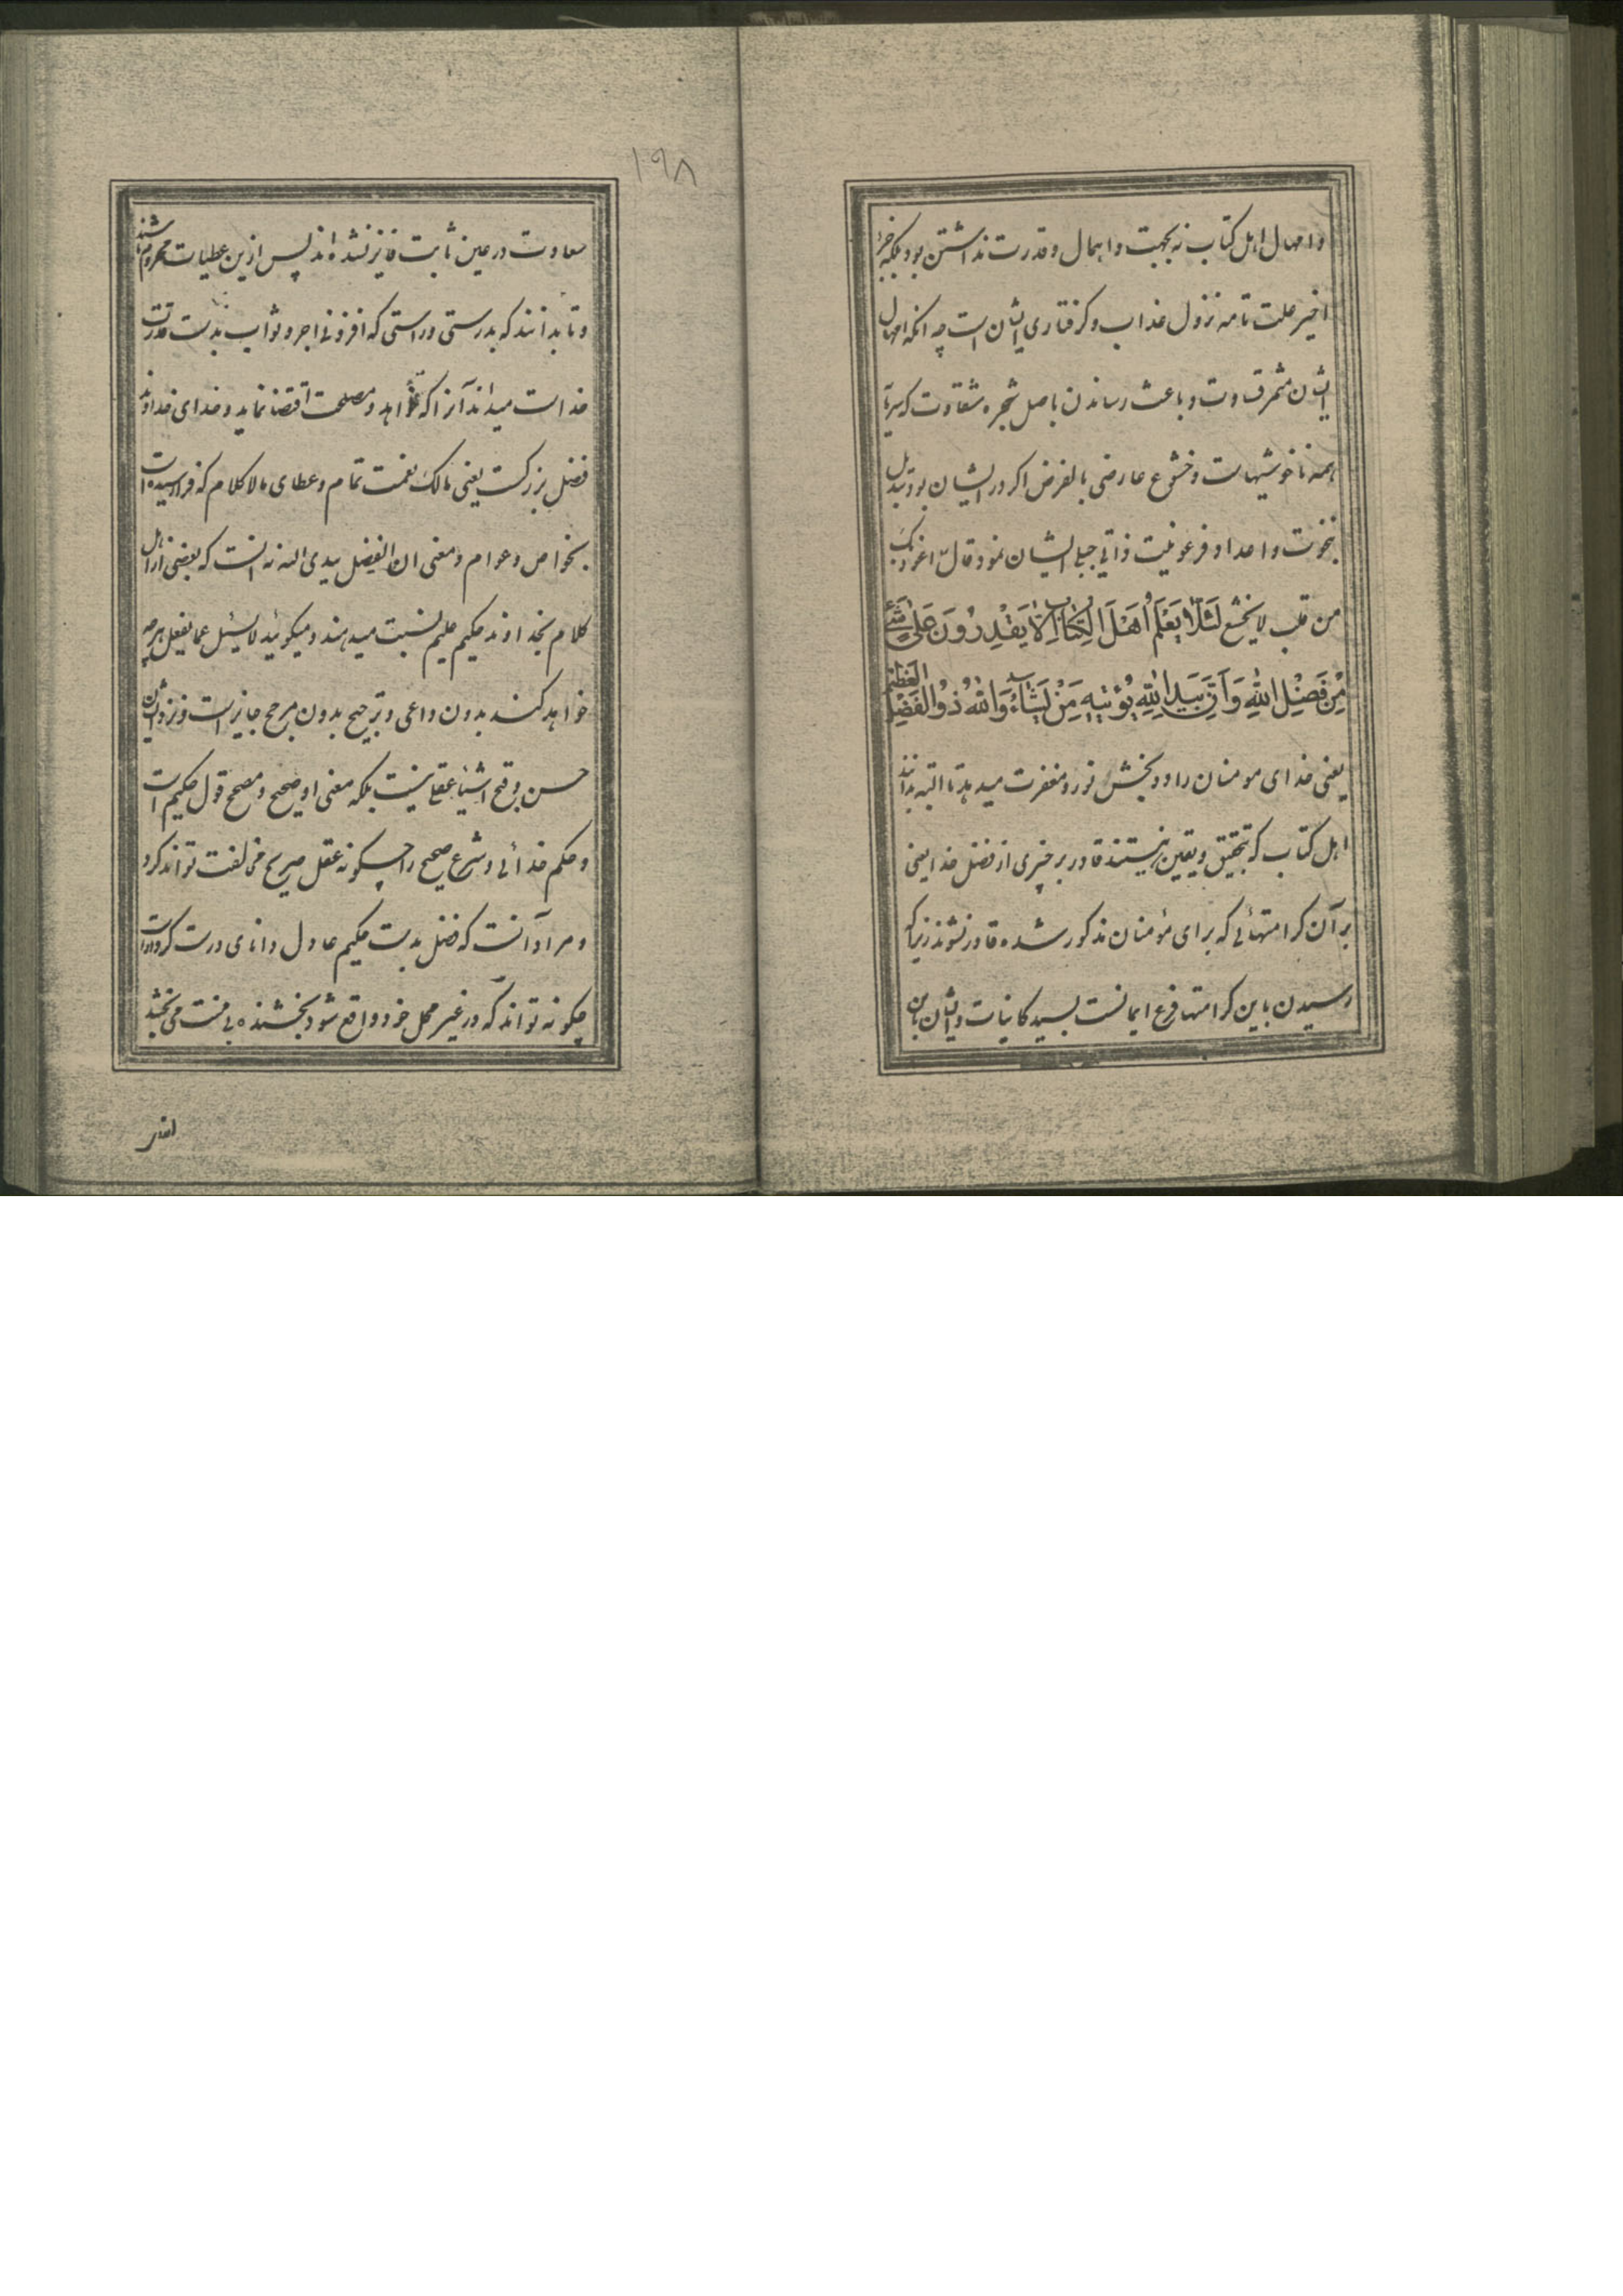 و امهال اهل کتاب نه بجهت و اهمال و قدرت نداشتن بود بلکه جزؤ
اخیر علت تامه نزول عذاب و کرفتاری ایشان است چه انکه امهال
ایشان مثمر قساوت و باعث رساندن باصل شجره شقاوت که سرمایه
همه ناخوشیهاست و خشوع عارضی بالفرض اکر در ایشان بود تبدیل
بنخوت و اعدا و فرعونیت ذاتی جبلی ایشان نمود قال اعوذ بک
من قلب لا یخشع لِئَلَّا یَعْلَمَ اَهْلَ الْکِتَابِ اَلَّا یَقْدِرُونَ عَلیٰ شَیْءٍ
مِنْ فَضْلِ اللّٰهِ وَاَنَّ بِیَدِ اللّٰهِ یُؤْتِیهِ مَنْ یَشَآءُ وَاللّٰهُ ذُو الْفَضْلِ الْعَظِیمِ
یعنی خدای مومنان را دو بخش نور و مغفرت میدهد تا البته بدانند
اهل کتاب که بتحقیق و یقین نیستند قادر بر چیزی از فضل خدا یعنی
بر آن کرامتهائی که برای مؤمنان مذکور شده قادر نشوند زیرا که
رسیدن باین کرامتها فرع ایمانست بسید کاینات و ایشان باین
۱۹۸
سعادت در عین ثابت فایز نشده اند پس ازین عطیات محروم باشند
و تا بدانند که بدرستی و راستی که افزونی اجر و ثواب بدست قدرت
خداست میداند آنرا که خواهد و مصلحت اقتضا نماید و خدای خداوند
فضل بزرکست یعنی مالک نعمت تمام و عطای مالا کلام که فرا رسیده است
بخواص و عوام و معنی ان الفضل بیدی الله نه انست که بعضی از اهل
کلام بخداوند حکیم علیم نسبت میدهند و میکوئید لا یسئل عما یفعل هر چه
خواهد کند بدون داعی و ترجیح بدون مرجح جایز است و نزد ایشان
حسن و قبح اشیا عقلی نیست بلکه معنی او صحیح و مصحح قول حکیم است
و حکم خدائی و شرع صحیح را چکونه عقل صریح مخالفت تواند کرد
و مراد آنست که فضل بدست حکیم عادل دانای درست کردار است
چکونه تواند که در غیر محل خود واقع شود بخشنده بی منت می بخشد